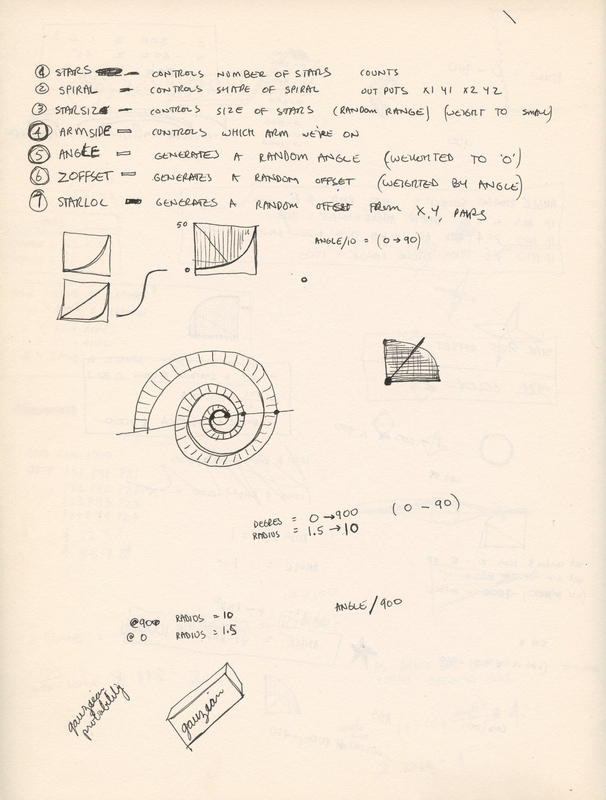 1 STARS — CONTROLS NUMBER OF STARS COUNTS
2 SPIRAL — CONTROLS SHAPE OF SPIRAL OUT PUTS X1 Y1 X2 Y2
3 STARSIZE — CONTROLS SIZE OF STARS (RANDOM RANGE) (WEIGHT TO SMALL)
4 ARMSIDE — CONTROLS WHICH ARM WE'RE ON
5 ANGLE — GENERATES A RANDOM ANGLE (WEIGHTED TO 'O')
6 ZOFFSET — GENERATES A RANDOM OFFSET (WEIGHTED BY ANGLE)
7 STARLOC — GENERATES A RANDOM OFFSET FROM X, Y, PAIRS
50
0
ANGLE/10 = (0→90)
DEGREES = 0→900 (0 - 90)
RADIUS = 1.5→10
ANGLE/900
@900 RADIUS = 10
@ 0 RADIUS = 1.5
gauzsian
probability
gauzsian